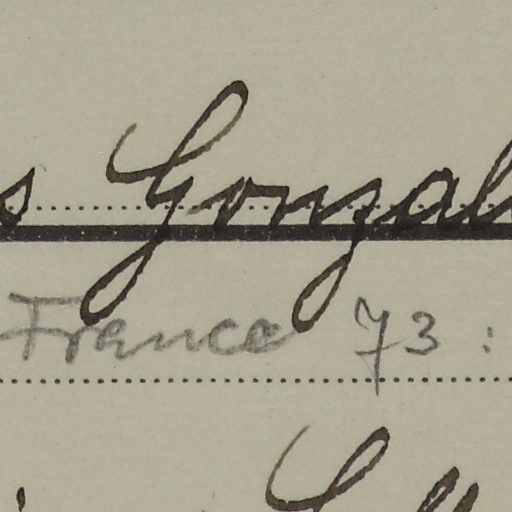 s Gonzal
France 73 :